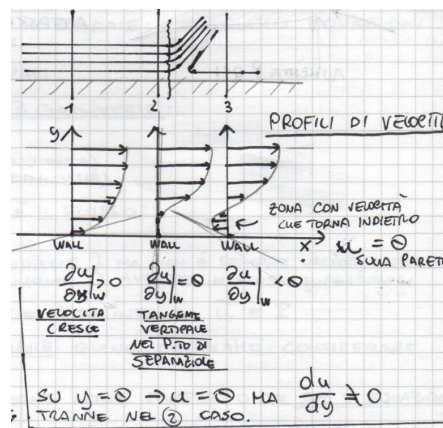 1 2 3
PROFILI DI VELOCITÀ
y
ZONA CON VELOCITÀ
CHE TORNA INDIETRO
WALL WALL WALL x u = 0
SULLA PARETE
∂u/∂y|w > 0 ∂u/∂y|w = 0 ∂u/∂y|w < 0
VELOCITA TANGENTE
CRESCE VERTICALE
NEL P.TO DI
SEPARAZIONE
SU y = 0 → u = 0 MA du/dy ≠ 0
TRANNE NEL ② CASO.